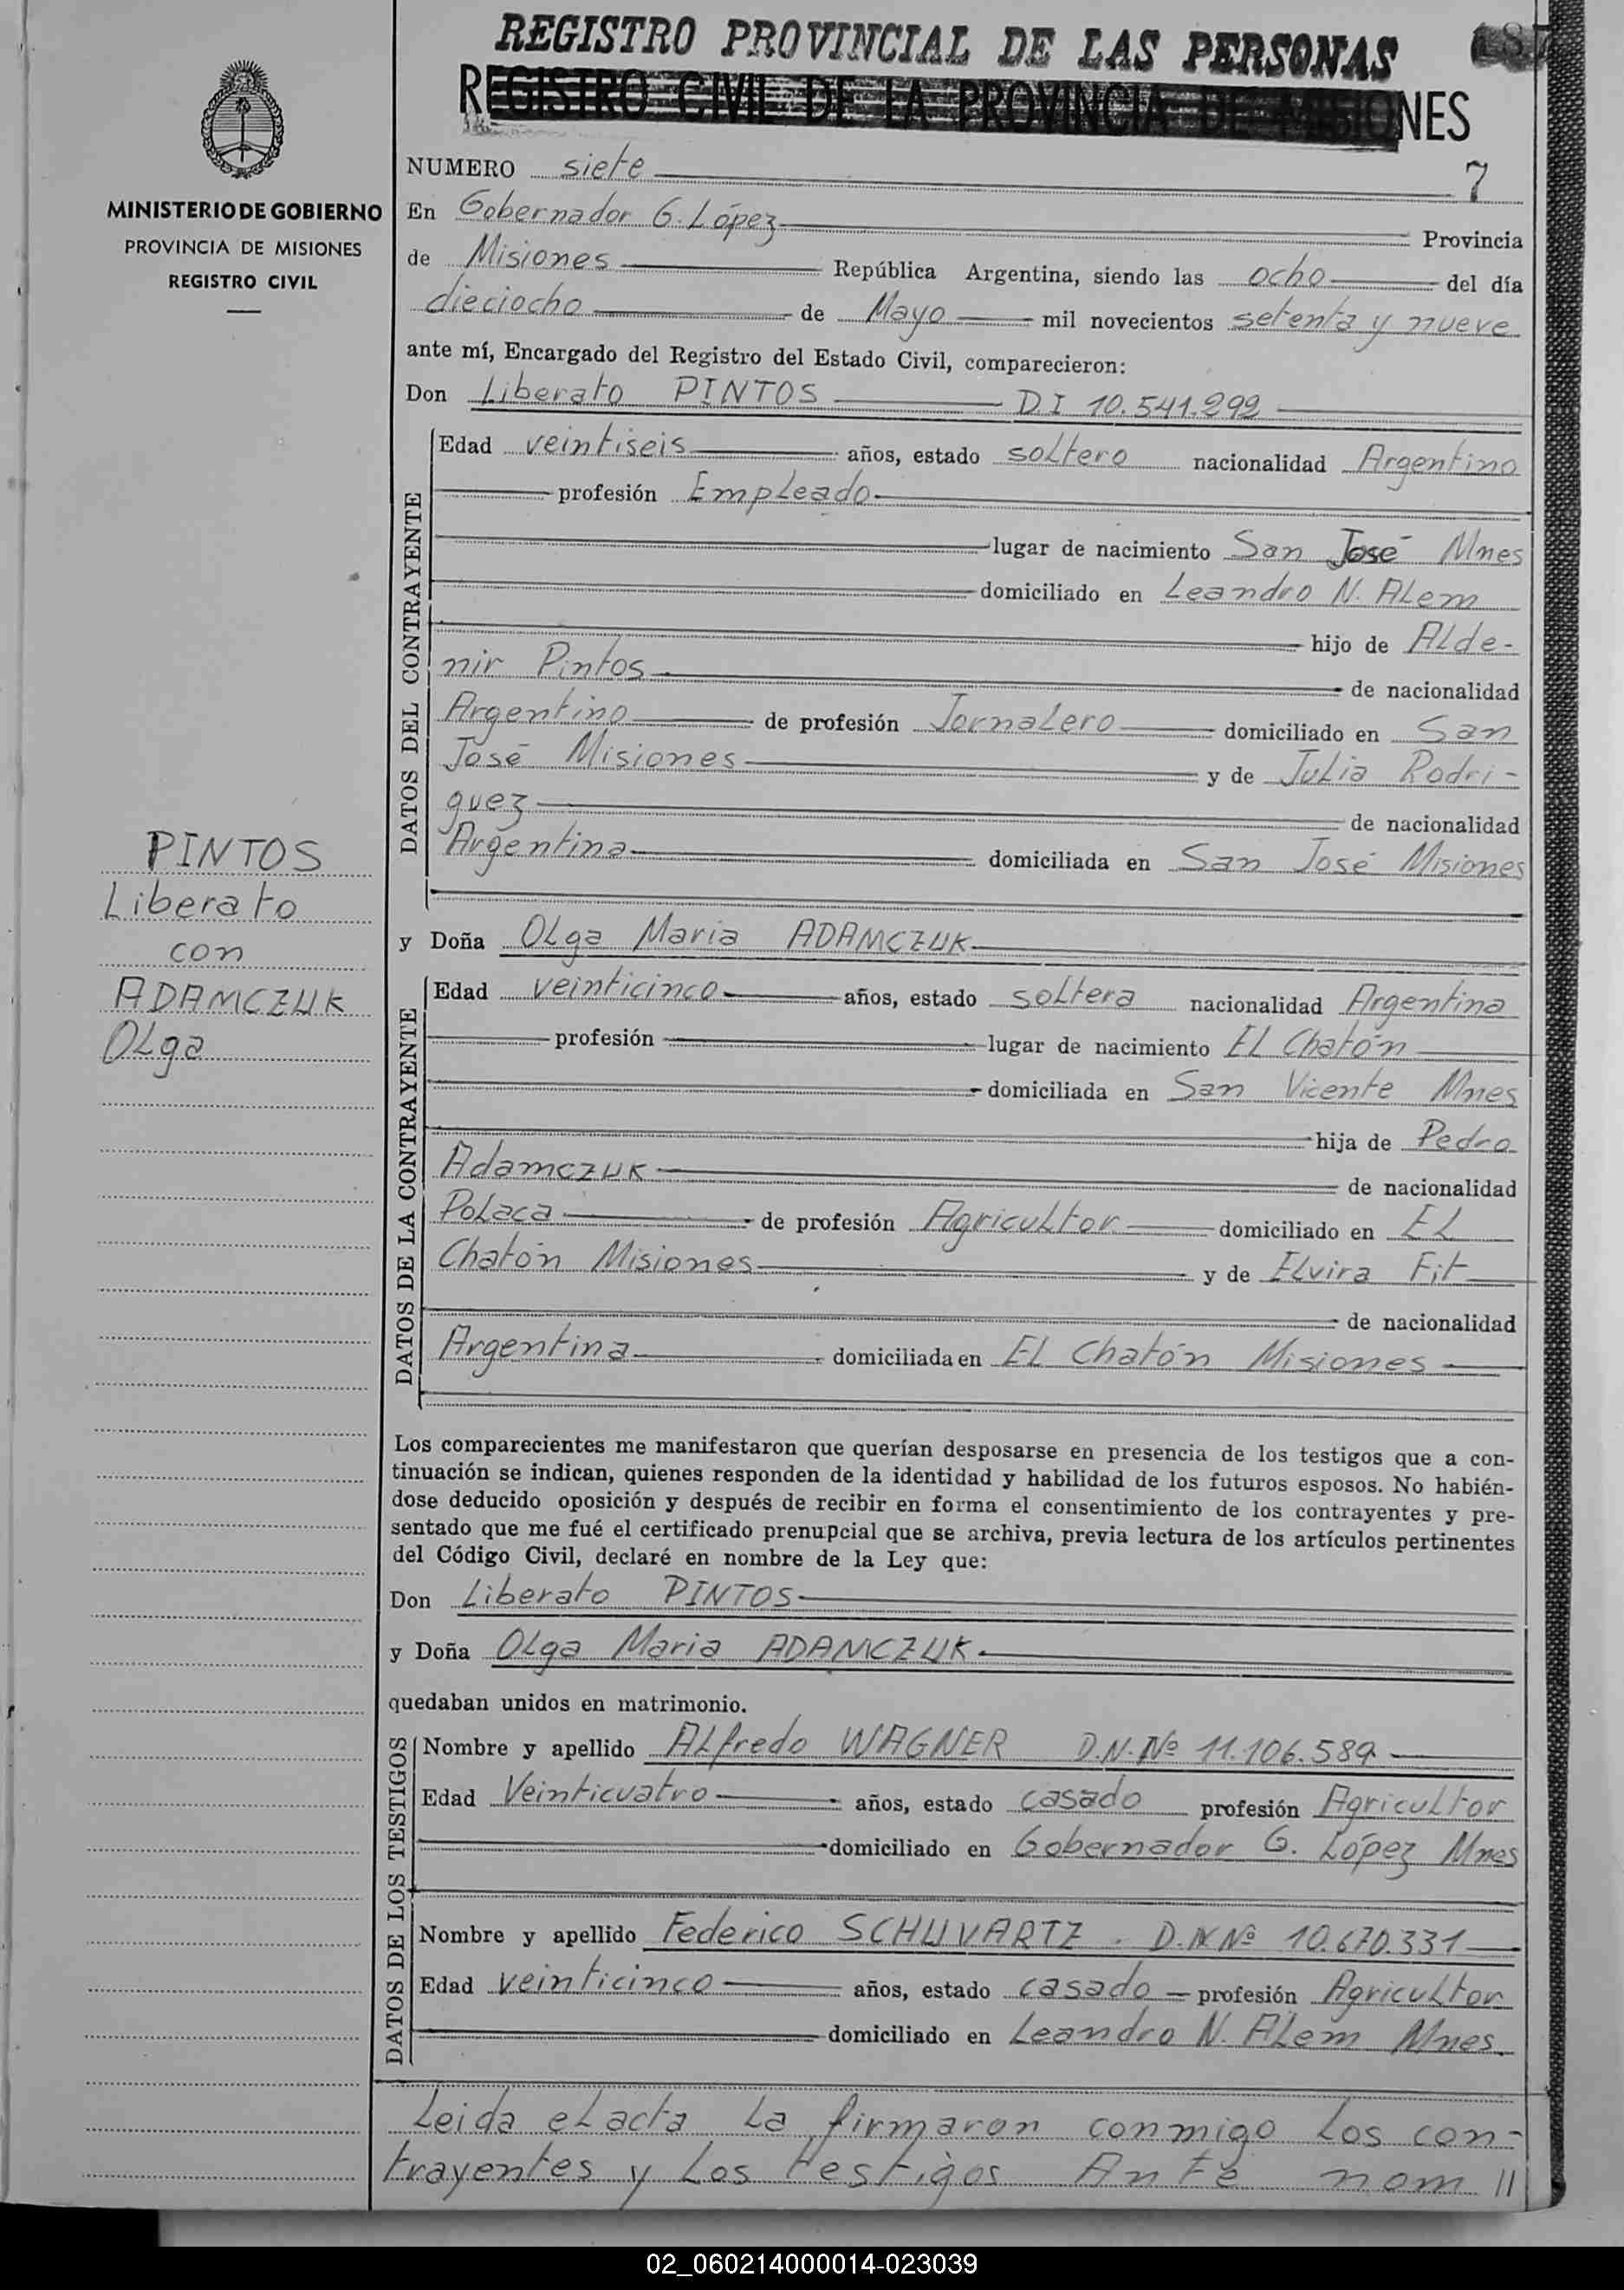 REGISTRO PROVINCIAL DE LAS PERSONAS
REGISTRO CIVIL DE LA PROVINCIA DE MISIONES
MINISTERIO DE GOBIERNO
PROVINCIA DE MISIONES
REGISTRO CIVIL
NUMERO siete 7
En Gobernador G. López Provincia
de Misiones República Argentina, siendo las ocho del día
dieciocho de Mayo mil novecientos setenta y nueve
ante mí, Encargado del Registro del Estado Civil, comparecieron:
Don Liberato PINTOS D.I 10.541.292
DATOS DEL CONTRAYENTE
Edad veintiseis años, estado soltero nacionalidad Argentino
profesión Empleado
lugar de nacimiento San José Mnes
domiciliado en Leandro N. ALem
hijo de ALde-
nir Pintos de nacionalidad
Argentino de profesión Jornalero domiciliado en San
José Misiones y de Julia Rodri-
guez de nacionalidad
Argentina domiciliada en San José Misiones
PINTOS
Liberato
con
ADAMCZUK
OLga
y Doña OLga Maria ADAMCZUK
DATOS DE LA CONTRAYENTE
Edad veinticinco años, estado soltera nacionalidad Argentina
profesión lugar de nacimiento EL Chatón
domiciliada en San Vicente Mnes
hija de Pedro
Adamczuk de nacionalidad
Polaca de profesión Agricultor domiciliado en EL
Chatón Misiones y de Elvira Fit
de nacionalidad
Argentina domiciliada en EL Chatón Misiones
Los comparecientes me manifestaron que querían desposarse en presencia de los testigos que a con-
tinuación se indican, quienes responden de la identidad y habilidad de los futuros esposos. No habién-
dose deducido oposición y después de recibir en forma el consentimiento de los contrayentes y pre-
sentado que me fué el certificado prenupcial que se archiva, previa lectura de los artículos pertinentes
del Código Civil, declaré en nombre de la Ley que:
Don Liberato PINTOS
y Doña OLga Maria ADAMCZUK
quedaban unidos en matrimonio.
DATOS DE LOS TESTIGOS
Nombre y apellido ALfredo WAGNER D.N.Nº 11.106.589
Edad Veinticuatro años, estado casado profesión Agricultor
domiciliado en Gobernador G. López Mnes
Nombre y apellido Federico SCHUVARTZ. D.N Nº 10.670.331
Edad veinticinco años, estado casado profesión Agricultor
domiciliado en Leandro N. ALem Mnes.
Leida el acta La firmaron conmigo Los con-
trayentes y Los testigos Ante nom //
02_060214000014-023039